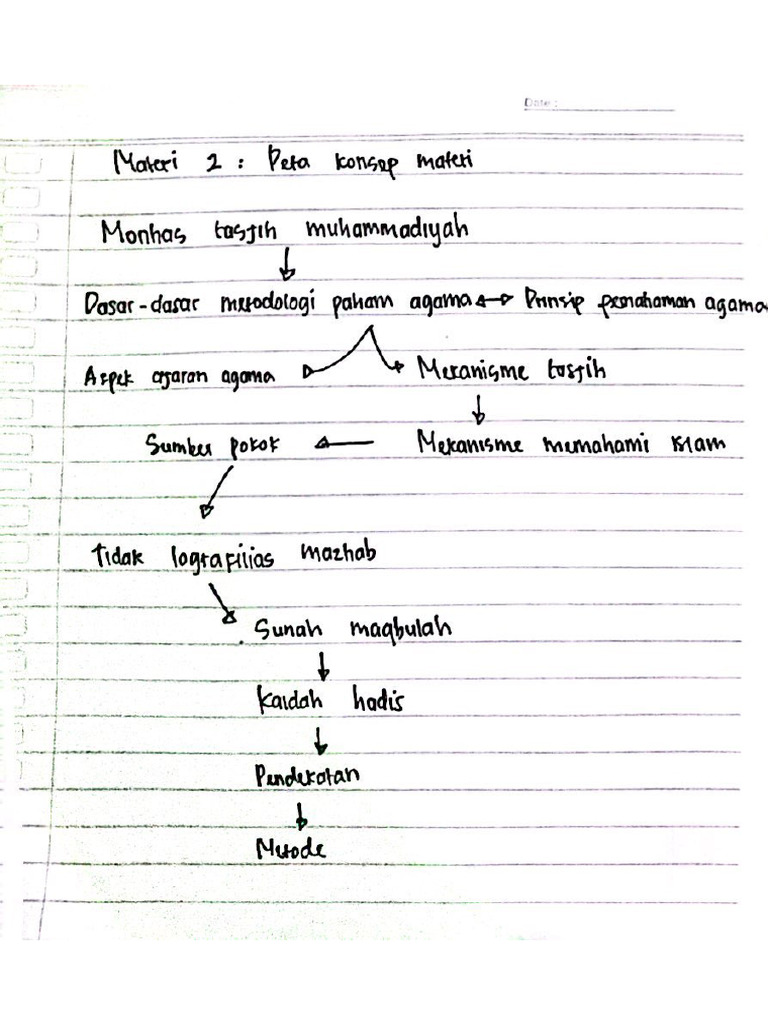 Date :
Materi 2 : Peta konsep materi
Monhas tasjih muhammadiyah
Dasar-dasar metodologi paham agama ↔ Prinsip pemahaman agama
Aspek ajaran agama Mekanisme tasjih
Sumber pokok ← Mekanisme memahami islam
Tidak mazhab
Sunah maqbulah
Kaidah hadis
Pendekatan
Metode